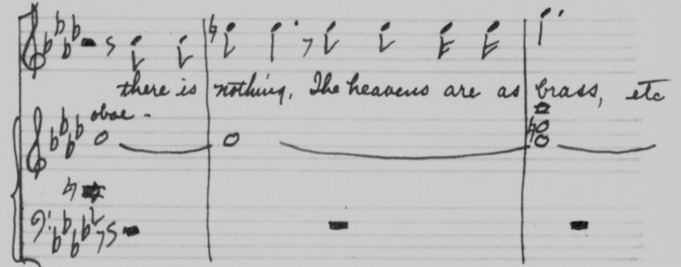 there is nothing. The heavens are as brass, etc
oboe.